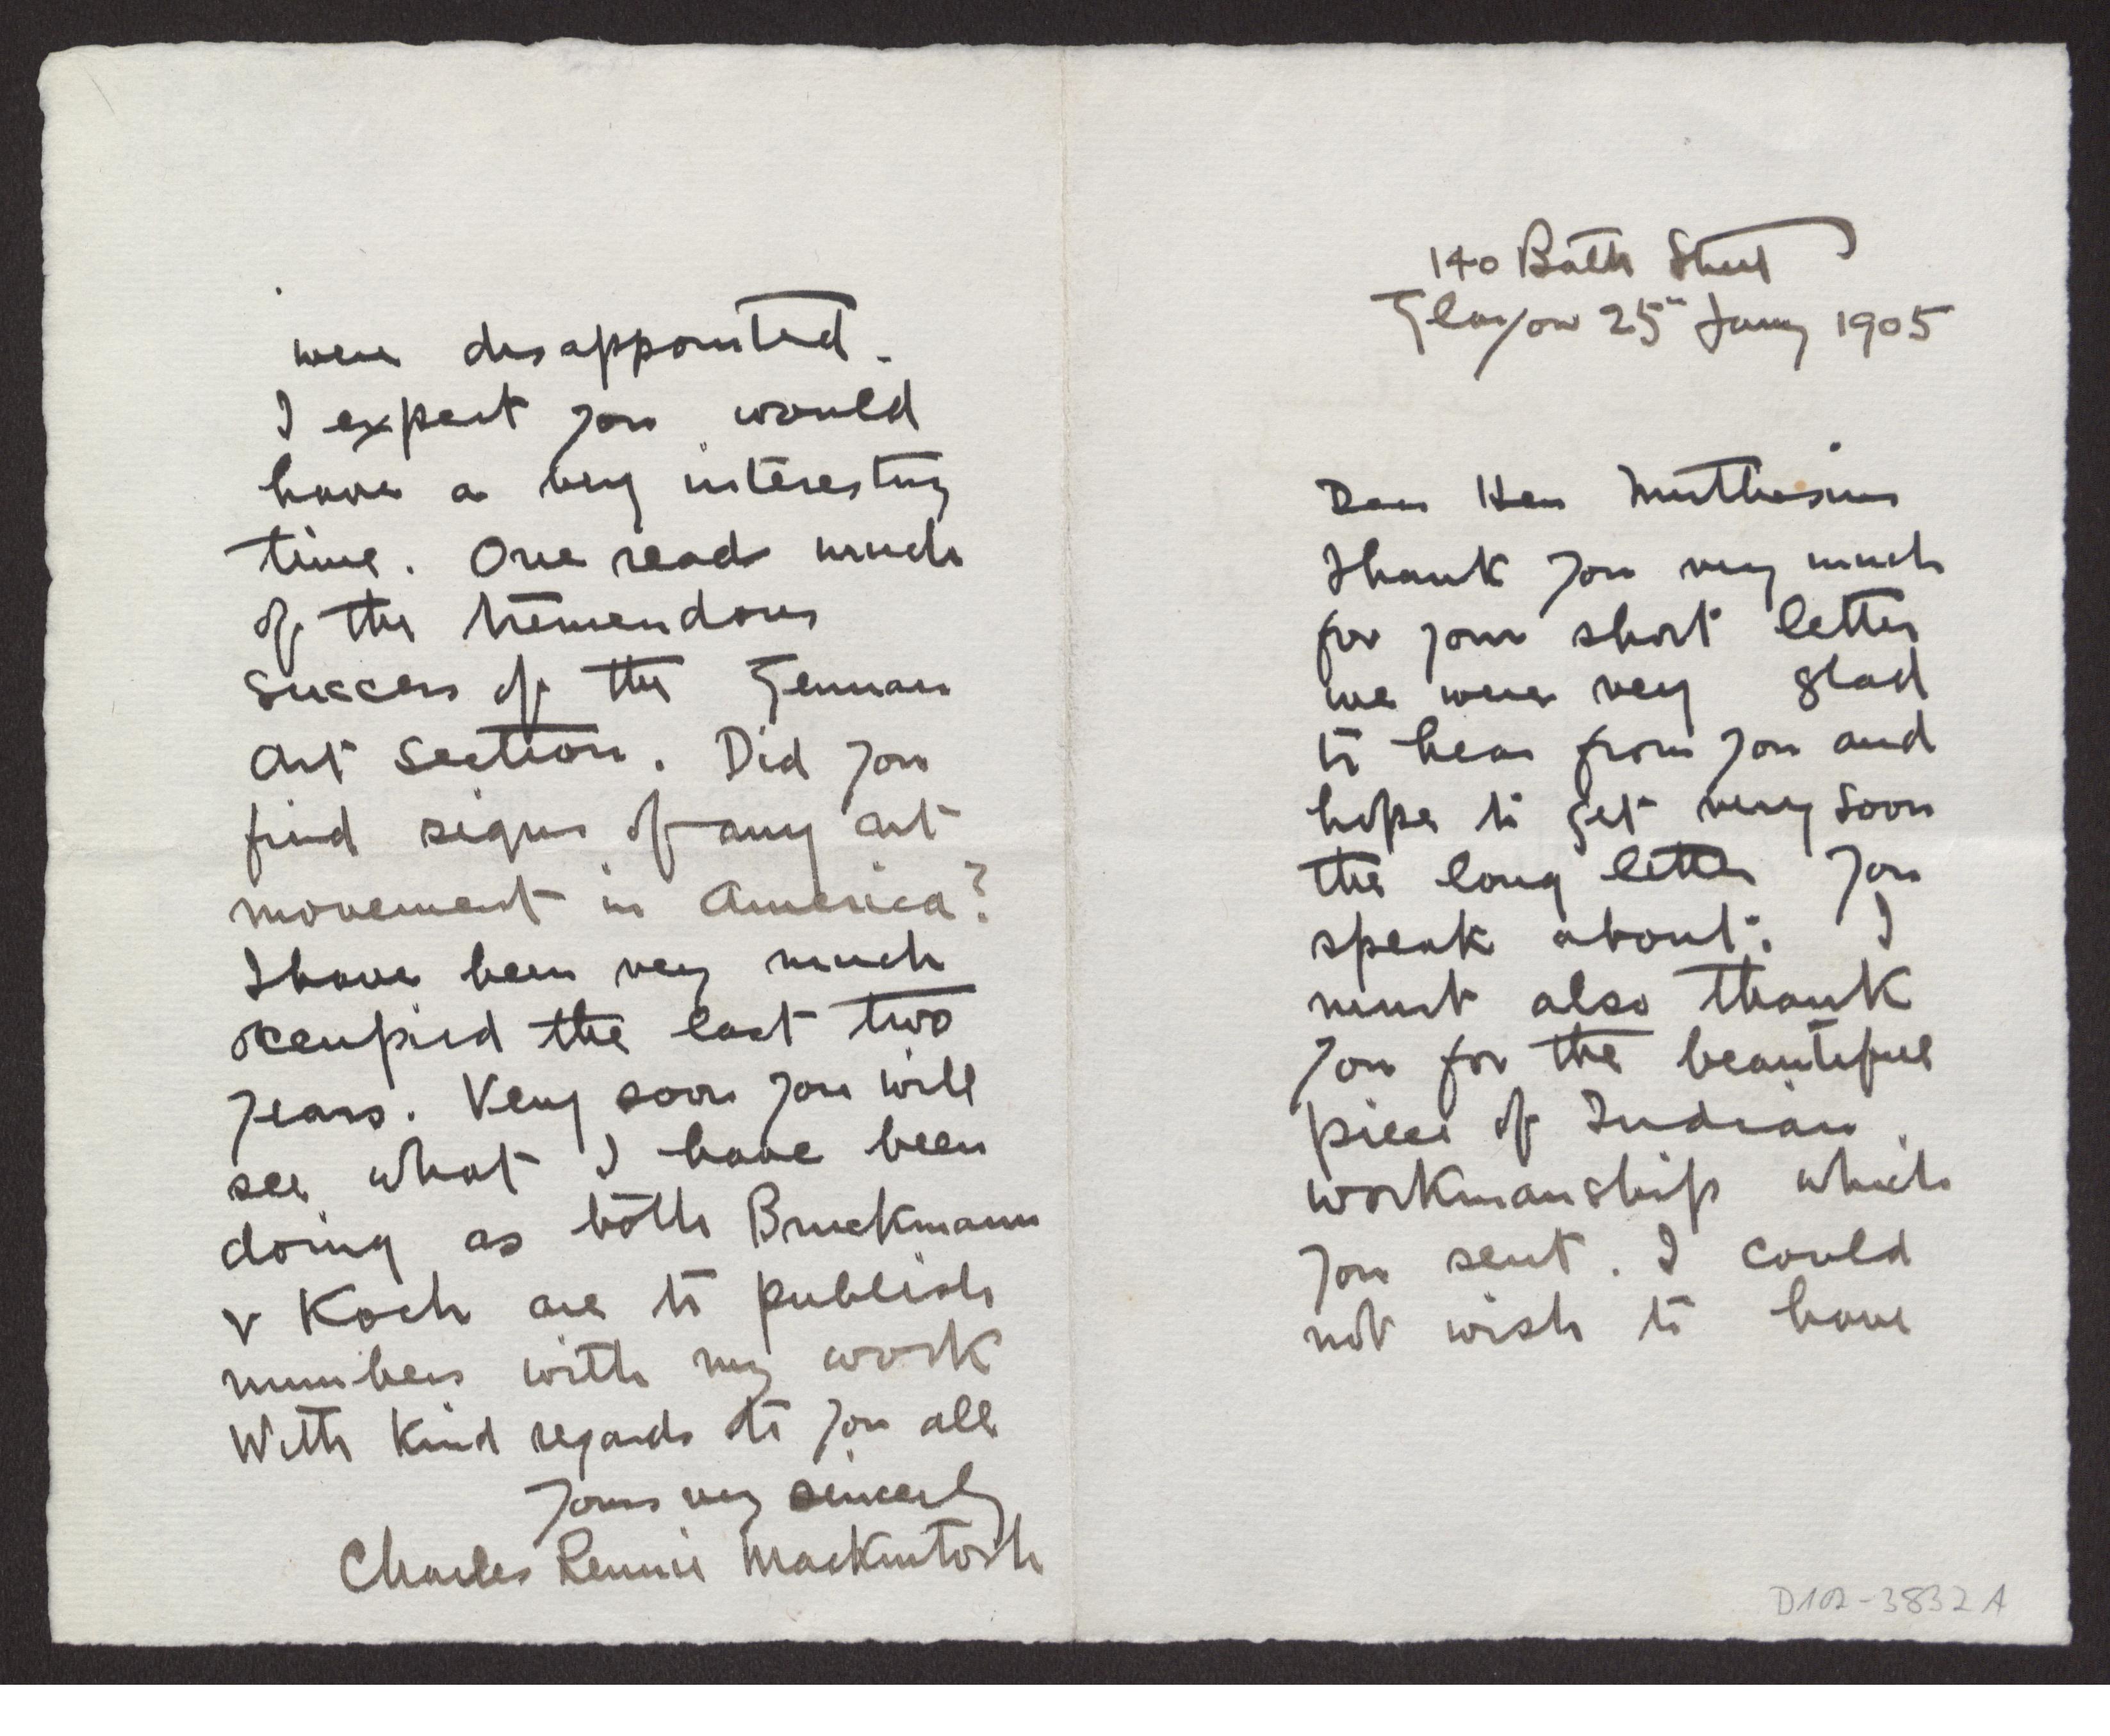 140 Bath Street
Glasgow 25th Jany 1905
Dear Herr Muthesius
Thank you very much
for your short letter
we were very glad
to hear from you and
hope to get very soon
the long letter you
speak about. I
must also thank
you for the beautiful
piece of Indian
workmanship which
you sent. I could
not wish to have
D102-3832 A
were disappointed.
I expect you would
have a very interesting
time. One read much
of the tremendous
success of the German
art section. Did you
find signs of any art
movement in America?
I have been very much
occupied the last two
years. Very soon you will
see what I have been
doing as both Bruckmann
& Koch are to publish
numbers with my work
With kind regards to you all
Yours very sincerely
Charles Rennie Mackintosh